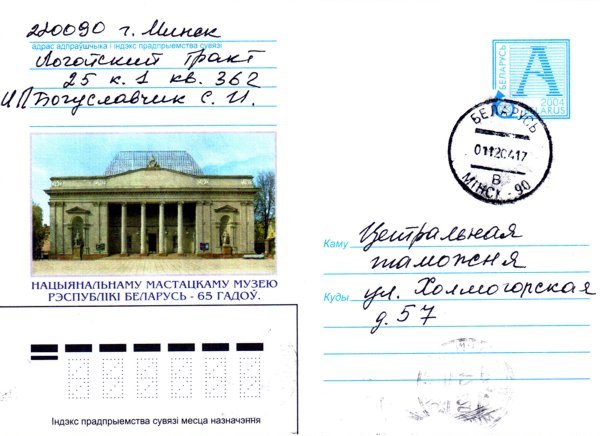 220090 г. Минск
адрас адпраўшчыка і індэкс прадпрыемства сувязі
Логойский Тракт
25 к. 1 кв. 362
ИП Богуславчик С. И.
БЕЛАРУСЬ
А
2004
BELARUS
БЕЛАРУСЬ
01122004 17
В
МІНСК - 90
НАЦЫЯНАЛЬНАМУ МАСТАЦКАМУ МУЗЕЮ
РЭСПУБЛІКІ БЕЛАРУСЬ - 65 ГАДОЎ.
Каму Центральная
таможня
Куды ул. Холмогорская
д. 57
Індэкс прадпрыемства сувязі месца назначэння